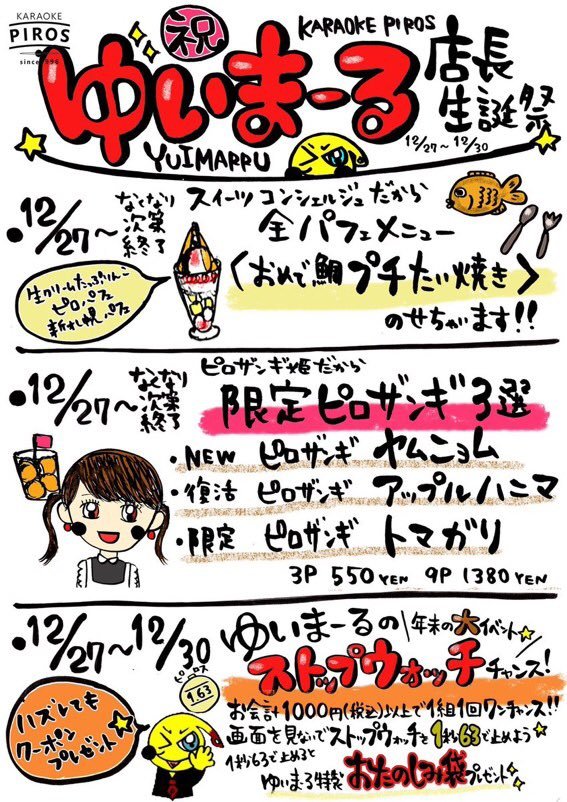 KARAOKE
PIROS
since 1996
祝
KARAOKE PIROS
ゆいまーる
YUIMARRU
店長
生誕祭
12/27〜12/30
・12/27〜
なくなり
次第
終了
スイーツコンシェルジュだから
全パフェメニュー
〈おめで鯛プチたい焼き〉
のせちゃいます!!
生クリームたっぷりんご
ピロパフェ
新札幌パフェ
・12/27〜
なくなり
次第
終了
ピロザンギ姫だから
限定ピロザンギ3選
・NEW ピロザンギ ヤムニョム
・復活 ピロザンギ アップルハニマ
・限定 ピロザンギ トマガリ
3P 550YEN 9P 1380YEN
・12/27〜12/30
ゆいまーるの
年末の大イベント
ストップウォッチチャンス!
お会計1000円(税込)以上で1組1回ワンチャンス!!
画面を見ないでストップウォッチを1秒63で止めよう
1秒63で止めると
ゆいまる特製 おたのしみ袋プレゼント
ピロス
1.63
ハズレても
クーポン
プレゼント